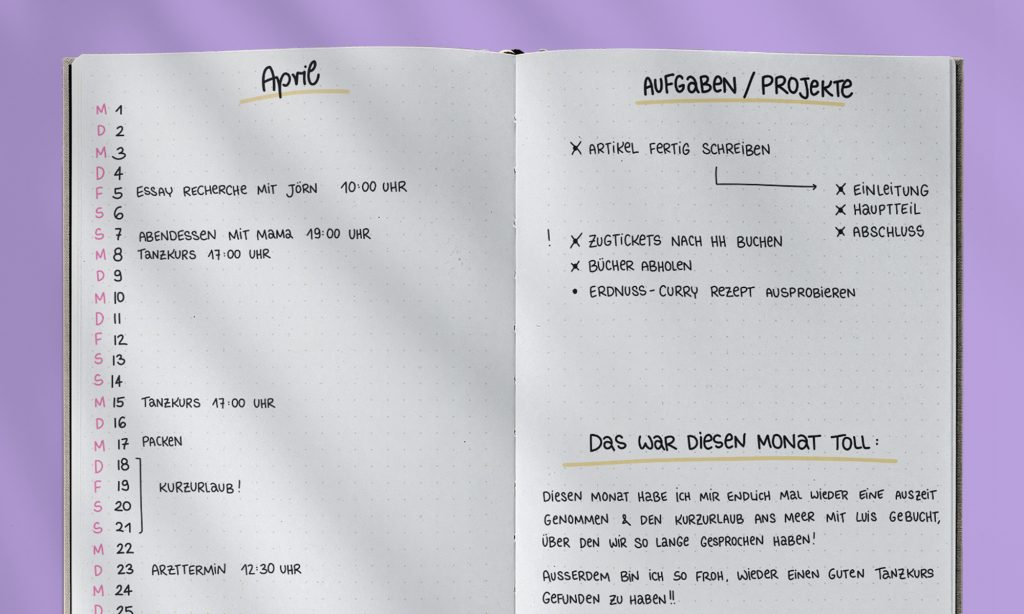 April
M 1
D 2
M 3
D 4
F 5 ESSAY RECHERCHE MIT JÖRN 10:00 UHR
S 6
S 7 ABENDESSEN MIT MAMA 19:00 UHR
M 8 TANZKURS 17:00 UHR
D 9
M 10
D 11
F 12
S 13
S 14
M 15 TANZKURS 17:00 UHR
D 16
M 17 PACKEN
D 18
F 19 KURZURLAUB!
S 20
S 21
M 22
D 23 ARZTTERMIN 12:30 UHR
M 24
D 25
AUFGABEN / PROJEKTE
× ARTIKEL FERTIG SCHREIBEN
× EINLEITUNG
× HAUPTTEIL
× ABSCHLUSS
! × ZUGTICKETS NACH HH BUCHEN
× BÜCHER ABHOLEN
• ERDNUSS-CURRY REZEPT AUSPROBIEREN
DAS WAR DIESEN MONAT TOLL:
DIESEN MONAT HABE ICH MIR ENDLICH MAL WIEDER EINE AUSZEIT
GENOMMEN & DEN KURZURLAUB ANS MEER MIT LUIS GEBUCHT,
ÜBER DEN WIR SO LANGE GESPROCHEN HABEN!
AUSSERDEM BIN ICH SO FROH, WIEDER EINEN GUTEN TANZKURS
GEFUNDEN ZU HABEN!!